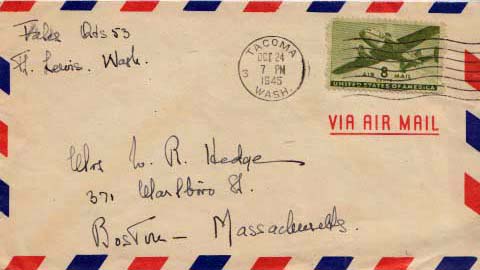 Qrs 53
Ft. Lewis, Wash.
TACOMA
OCT 24
7 PM
1945
WASH.
3
AIR 8 MAIL
CENTS
UNITED STATES OF AMERICA
VIA AIR MAIL
Mrs W. R. Hedge
371 Marlboro St.
Boston — Massachusetts.